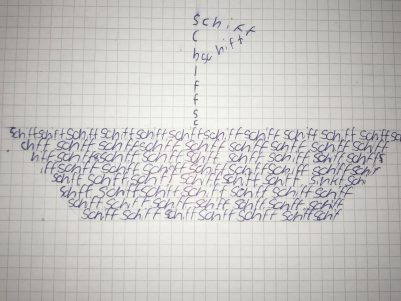 Schiff
c
h Schiff
i
f
f
s
c
schiffschiffschiff schiff schiff schiff schiff schiff schiff schiff schiff sc
chiff schiff schiff schiff schiff schiff schiff schiff schiff schiff
hiff schiff schiff schiff schiff schiff schiff schiff schiffs
iff schiff schiff schiff schiff schiff schiff schiff schif
schiff schiff schiff schiff schiff schiff schiff sinkt schi
schiff schiff schiff schiff schiff schiff schiff schiff
schiff schiff schiff schiff schiff schiff schiff schiff
schiff schiff schiff schiff schiff schiff schiff